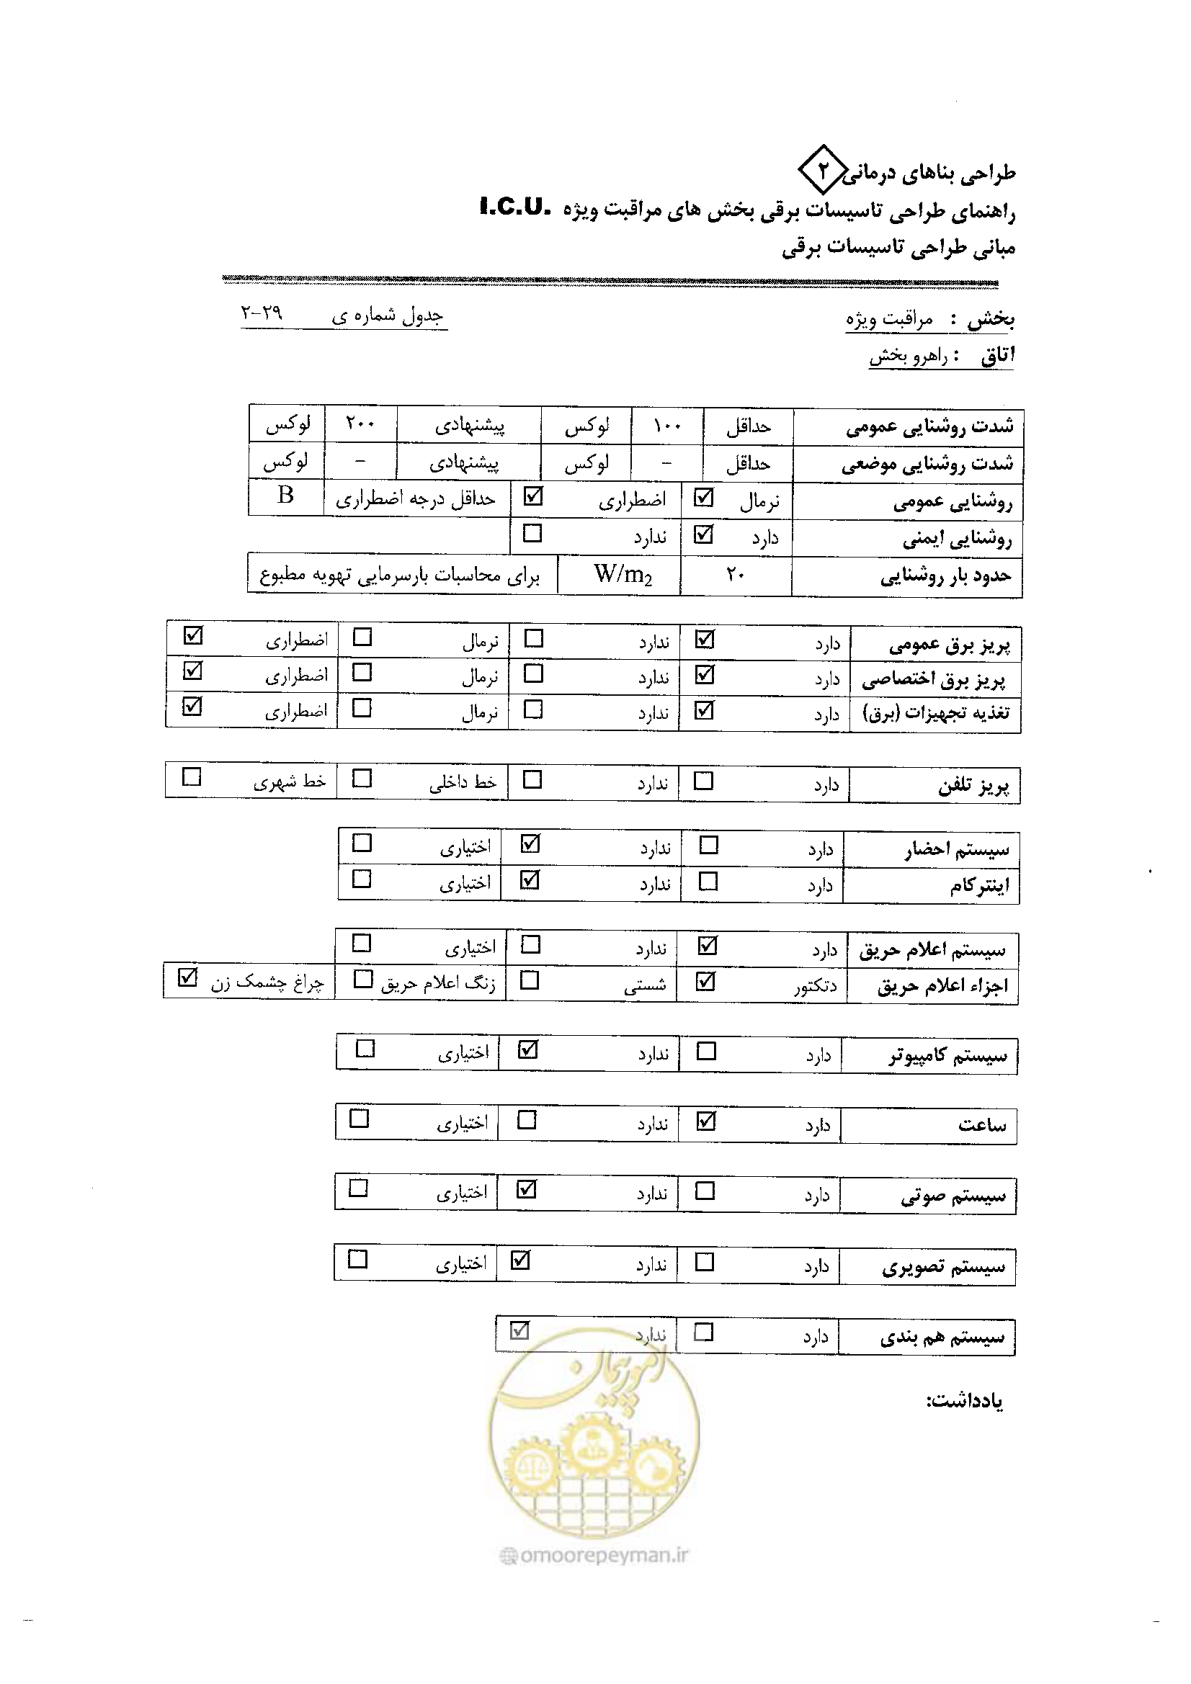 طراحی بناهای درمانی ۲
راهنمای طراحی تاسیسات برقی بخش های مراقبت ویژه I.C.U.
مبانی طراحی تاسیسات برقی
بخش : مراقبت ویژه جدول شماره ی ۲-۲۹
اتاق : راهرو بخش
شدت روشنایی عمومی حداقل ۱۰۰ لوکس پیشنهادی ۲۰۰ لوکس
شدت روشنایی موضعی حداقل – لوکس پیشنهادی – لوکس
روشنایی عمومی نرمال ☑ اضطراری ☑ حداقل درجه اضطراری B
روشنایی ایمنی دارد ☑ ندارد ☐
حدود بار روشنایی ۲۰ W/m2 برای محاسبات بارسرمایی تهویه مطبوع
پریز برق عمومی دارد ☑ ندارد ☐ نرمال ☐ اضطراری ☑
پریز برق اختصاصی دارد ☑ ندارد ☐ نرمال ☐ اضطراری ☑
تغذیه تجهیزات (برق) دارد ☑ ندارد ☐ نرمال ☐ اضطراری ☑
پریز تلفن دارد ☐ ندارد ☐ خط داخلی ☐ خط شهری ☐
سیستم احضار دارد ☐ ندارد ☑ اختیاری ☐
اینترکام دارد ☐ ندارد ☑ اختیاری ☐
سیستم اعلام حریق دارد ☑ ندارد ☐ اختیاری ☐
اجزاء اعلام حریق دتکتور ☑ شستی ☐ زنگ اعلام حریق ☐ چراغ چشمک زن ☑
سیستم کامپیوتر دارد ☐ ندارد ☑ اختیاری ☐
ساعت دارد ☑ ندارد ☐ اختیاری ☐
سیستم صوتی دارد ☐ ندارد ☑ اختیاری ☐
سیستم تصویری دارد ☐ ندارد ☑ اختیاری ☐
سیستم هم بندی دارد ☐ ندارد ☑
یادداشت:
امور پیمان
@omoorepeyman.ir